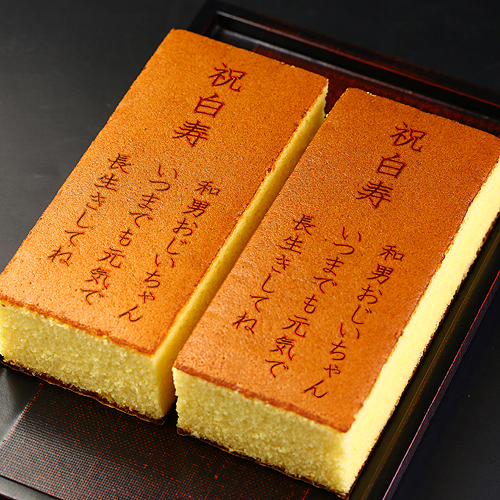 祝白寿
和男おじいちゃん
いつまでも元気で
長生きしてね
祝白寿
和男おじいちゃん
いつまでも元気で
長生きしてね